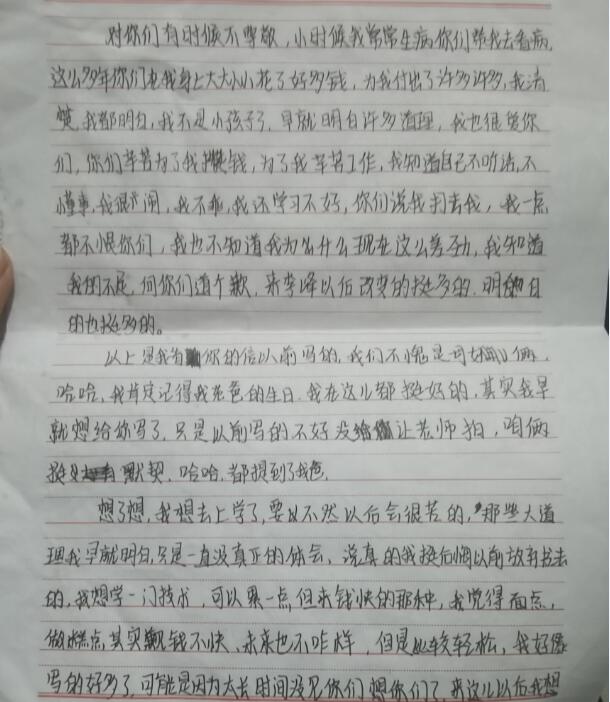 对你们有时候不尊敬，小时候我常常生病你们带我去看病，
这么多年你们在我身上大大小小花了好多钱，为我付出了许多许多，我清
楚，我都明白，我不是小孩子了，早就明白许多道理，我也很爱你
们，你们辛苦为了我挣钱，为了我辛苦工作，我知道自己不听话，不
懂事，我很闹，我不乖，我还学习不好，你们说我打我，我一点
都不恨你们，我也不知道我为什么现在这么差劲，我知道
我的不足，向你们道个歉，来李峰以后改变的挺多的，明白
的也挺多的。
以上是我给你的信以前写的，我们不愧是母女俩，
哈哈，我肯定记得我老爸的生日，我在这儿都挺好的，其实我早
就想给你写了，只是以前写的不好没让老师拍，咱俩
挺有默契，哈哈，都提到了我爸，
想了想，我想去上学了，要不然以后会很苦的，那些大道
理我早就明白，只是一直没真正的体会，说真的我挺后悔以前放弃书去
的，我想学一门技术，可以累一点，但来钱快的那种，我觉得面点，
做糕点，其实钱不快，未来也不咋样，但是比较轻松，我好像
写的好多了，可能是因为太长时间没见你们想你们了，来这儿以后我想